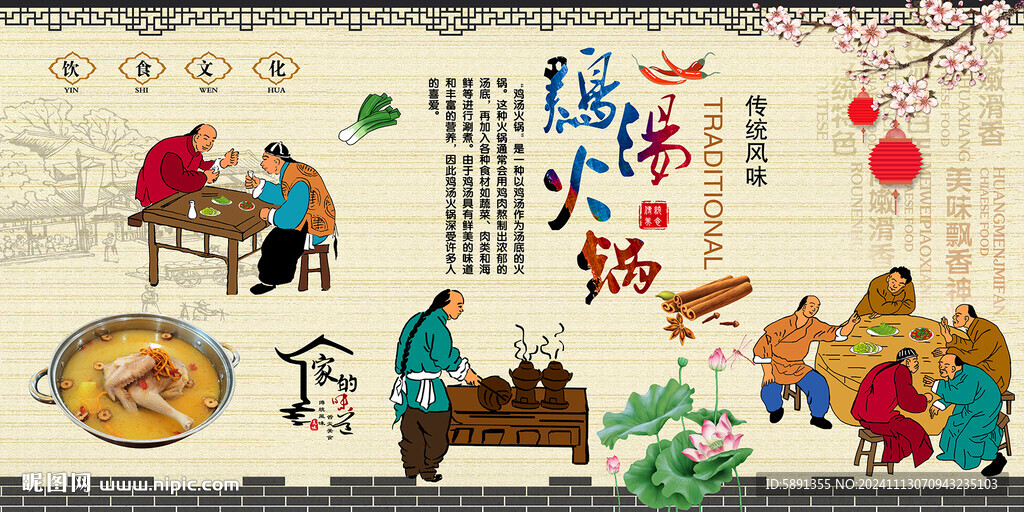 饮 食 文 化
YIN SHI WEN HUA
鷄汤火锅
传统风味
TRADITIONAL
"鸡汤火锅"是一种以鸡汤作为汤底的火
锅。这种火锅通常会用鸡肉熬制出浓郁的
汤底,再加入各种食材如蔬菜、肉类和海
鲜等进行涮煮。由于鸡汤具有鲜美的味道
和丰富的营养,因此鸡汤火锅深受许多人
的喜爱。
家的
味道
传统风味
舌尖美食
肉嫩滑香
美味飘香神
嫩滑香
统特色
HUANGMENJMIFAN
昵图网 www.hipic.com
ID:5891355,NO:20241113070943235103